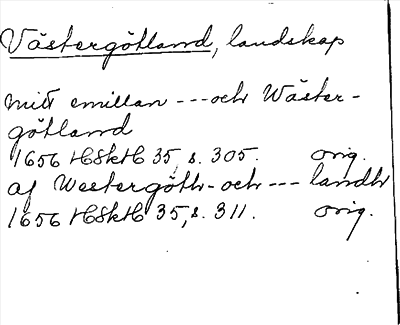 Västergötland, landskap
mitt emillan --- och Wäster-
götland
1656 HSkH 35, s. 305. orig.
af Westergöth- och --- landh
1656 HSkH 35, s. 311. orig.